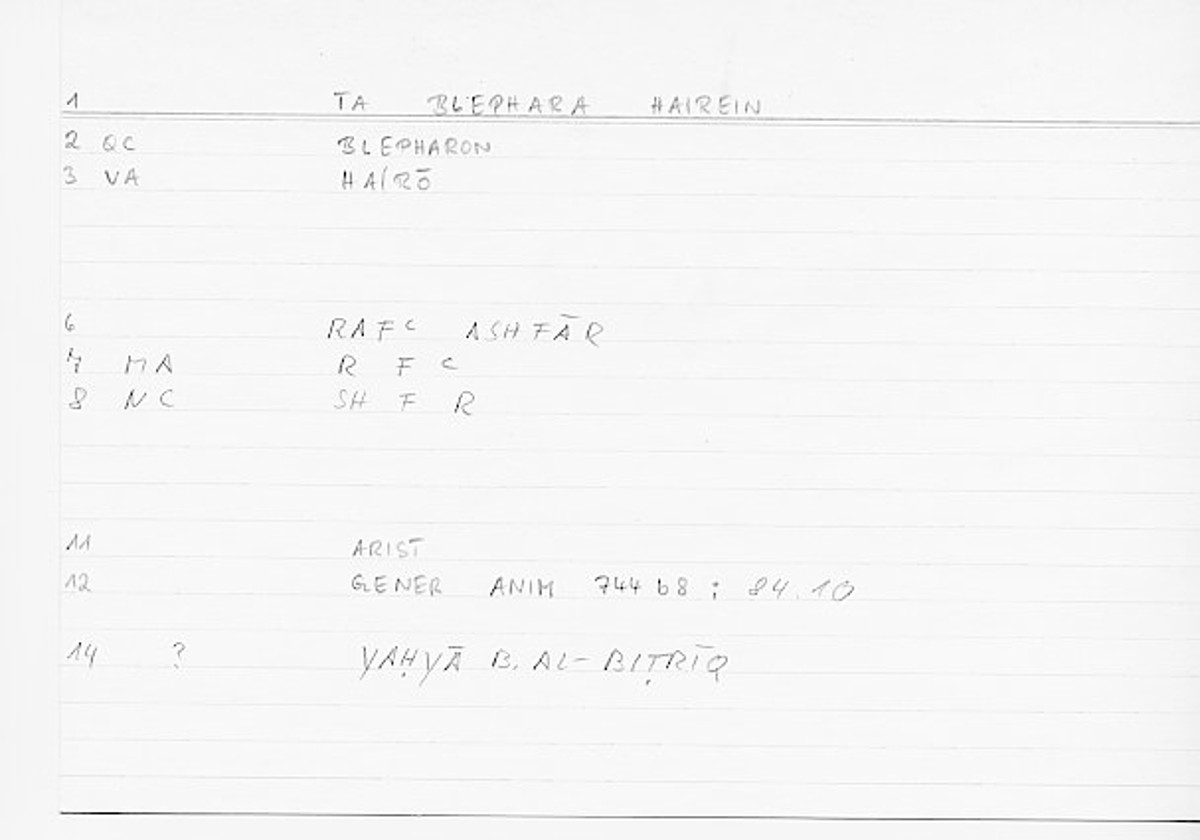 1 TA BLEPHARA HAIREIN
2 QC BLEPHARON
3 VA HAIRŌ
6 RAFC ASHFĀR
7 MA R F C
8 NC SH F R
11 ARIST
12 GENER ANIM 744 b8 : 84.10
14 ? YAḤYĀ B. AL-BIṬRĪQ